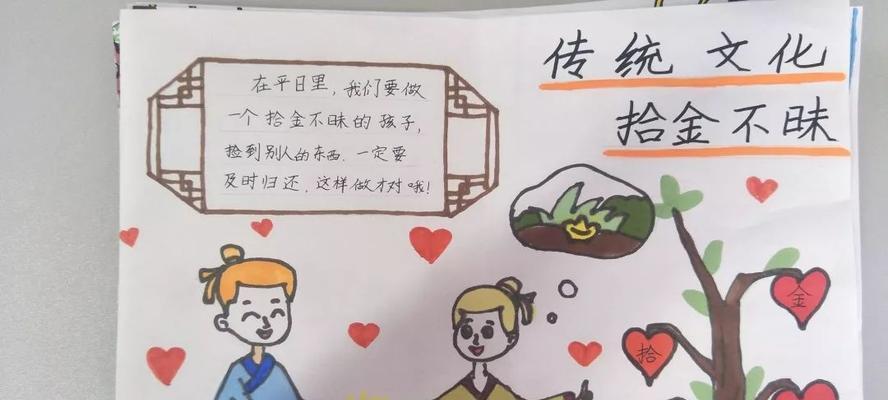 传统 文化
拾金不昧
在平日里，我们要做
一个拾金不昧的孩子，
捡到别人的东西．一定要
及时归还．这样做才对哦！
金
拾